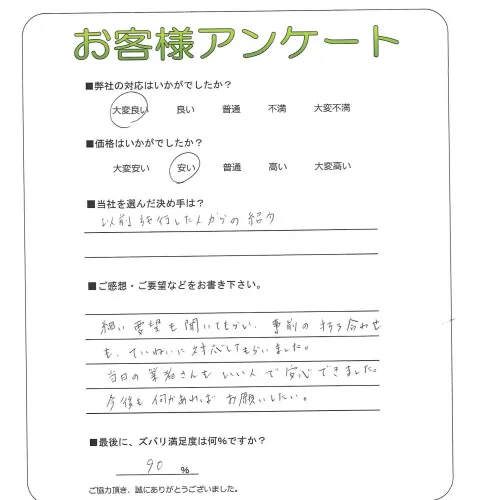 お客様アンケート
■弊社の対応はいかがでしたか？
大変良い 良い 普通 不満 大変不満
■価格はいかがでしたか？
大変安い 安い 普通 高い 大変高い
■当社を選んだ決め手は？
以前 を行した人からの紹介
■ご感想・ご要望などをお書き下さい。
細い要望も聞いてもらい、事前の打ち合わせ
も、ていねいに対応してもらいました。
当日の業者さんもいい人で安心できました。
今後も何かあればお願いしたい。
■最後に、ズバリ満足度は何%ですか？
90 %
ご協力頂き、誠にありがとうございました。